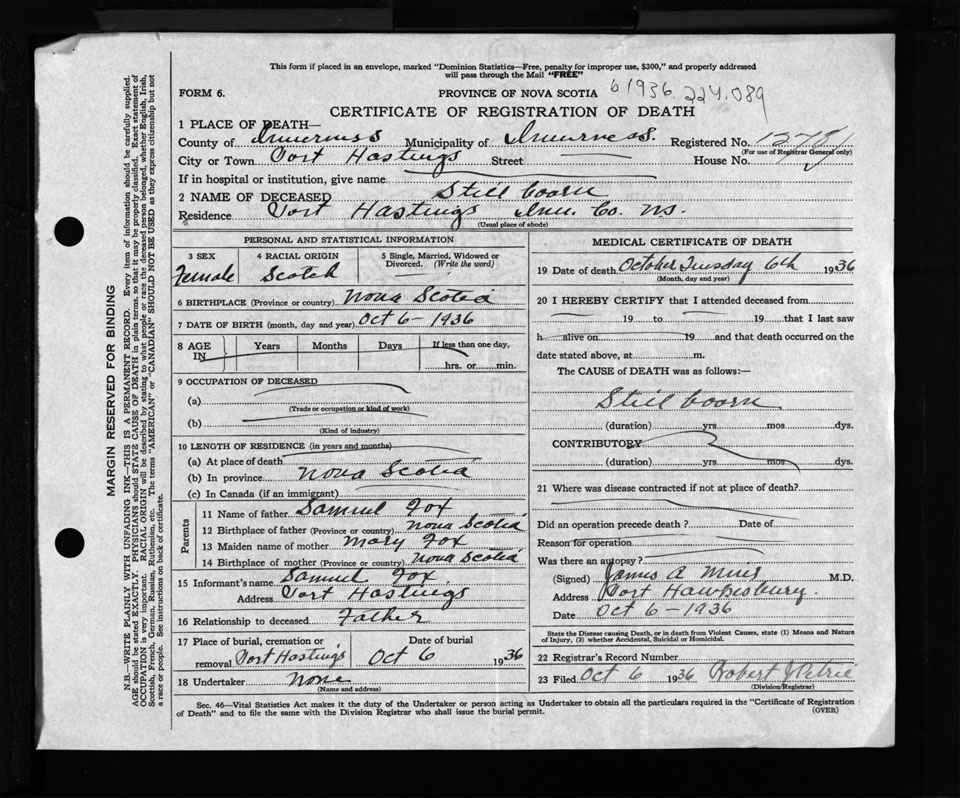 This form if placed in an envelope, marked "Dominion Statistics—Free, penalty for improper use, $300," and properly addressed
will pass through the Mail "FREE"
FORM 6. PROVINCE OF NOVA SCOTIA 6 1936 224.089
CERTIFICATE OF REGISTRATION OF DEATH
1 PLACE OF DEATH—
County of Inverness Municipality of Inverness. Registered No.
(For use of Registrar General only)
City or Town Port Hastings Street House No.
If in hospital or institution, give name
2 NAME OF DECEASED Still boorn
Residence Port Hastings Inv. Co. N.S.
(Usual place of abode)
PERSONAL AND STATISTICAL INFORMATION
3 SEX 4 RACIAL ORIGIN 5 Single, Married, Widowed or
Divorced. (Write the word)
Female Scotch
6 BIRTHPLACE (Province or country) Nova Scotia
7 DATE OF BIRTH (month, day and year) Oct 6 - 1936
8 AGE IN Years Months Days If less than one day,
hrs. or min.
9 OCCUPATION OF DECEASED
(a)
(Trade or occupation or kind of work)
(b)
(Kind of industry)
10 LENGTH OF RESIDENCE (in years and months)
(a) At place of death
(b) In province Nova Scotia
(c) In Canada (if an immigrant)
Parents
11 Name of father Samuel Fox
12 Birthplace of father (Province or country) Nova Scotia
13 Maiden name of mother Mary Fox
14 Birthplace of mother (Province or country) Nova Scotia
15 Informant's name Samuel Fox.
Address Port Hastings
16 Relationship to deceased Father
17 Place of burial, cremation or Date of burial
removal Port Hastings Oct 6 1936
18 Undertaker None
(Name and address)
MEDICAL CERTIFICATE OF DEATH
19 Date of death October Tuesday 6th 1936
(Month, day and year)
20 I HEREBY CERTIFY that I attended deceased from
19 to 19 that I last saw
h alive on 19 and that death occurred on the
date stated above, at m.
The CAUSE of DEATH was as follows:—
Still boorn
(duration) yrs. mos. dys.
CONTRIBUTORY
(duration) yrs. mos. dys.
21 Where was disease contracted if not at place of death?
Did an operation precede death ? Date of
Reason for operation
Was there an autopsy?
(Signed) James A Muir M.D.
Address Port Hawkesbury.
Date Oct 6 - 1936
State the Disease causing Death, or in death from Violent Causes, state (1) Means and Nature
of Injury, (2) whether Accidental, Suicidal or Homicidal.
22 Registrar's Record Number
23 Filed Oct 6 1936 Robert J Petrie
(Division Registrar)
Sec. 46—Vital Statistics Act makes it the duty of the Undertaker or person acting as Undertaker to obtain all the particulars required in the "Certificate of Registration
of Death" and to file the same with the Division Registrar who shall issue the burial permit. (OVER)
MARGIN RESERVED FOR BINDING
N.B.—WRITE PLAINLY WITH UNFADING INK—THIS IS A PERMANENT RECORD. Every item of information should be carefully supplied.
AGE should be stated EXACTLY. PHYSICIANS should STATE CAUSE OF DEATH in plain terms, so that it may be properly classified. Exact statement of
OCCUPATION is very important. RACIAL ORIGIN will be described by stating to what people or race the deceased person belonged, whether English, Irish,
Scottish, French, German, Russian, Ruthenian, etc. The terms "AMERICAN" or "CANADIAN" SHOULD NOT BE USED as they express citizenship but not
a race or people. See instructions on back of certificate.